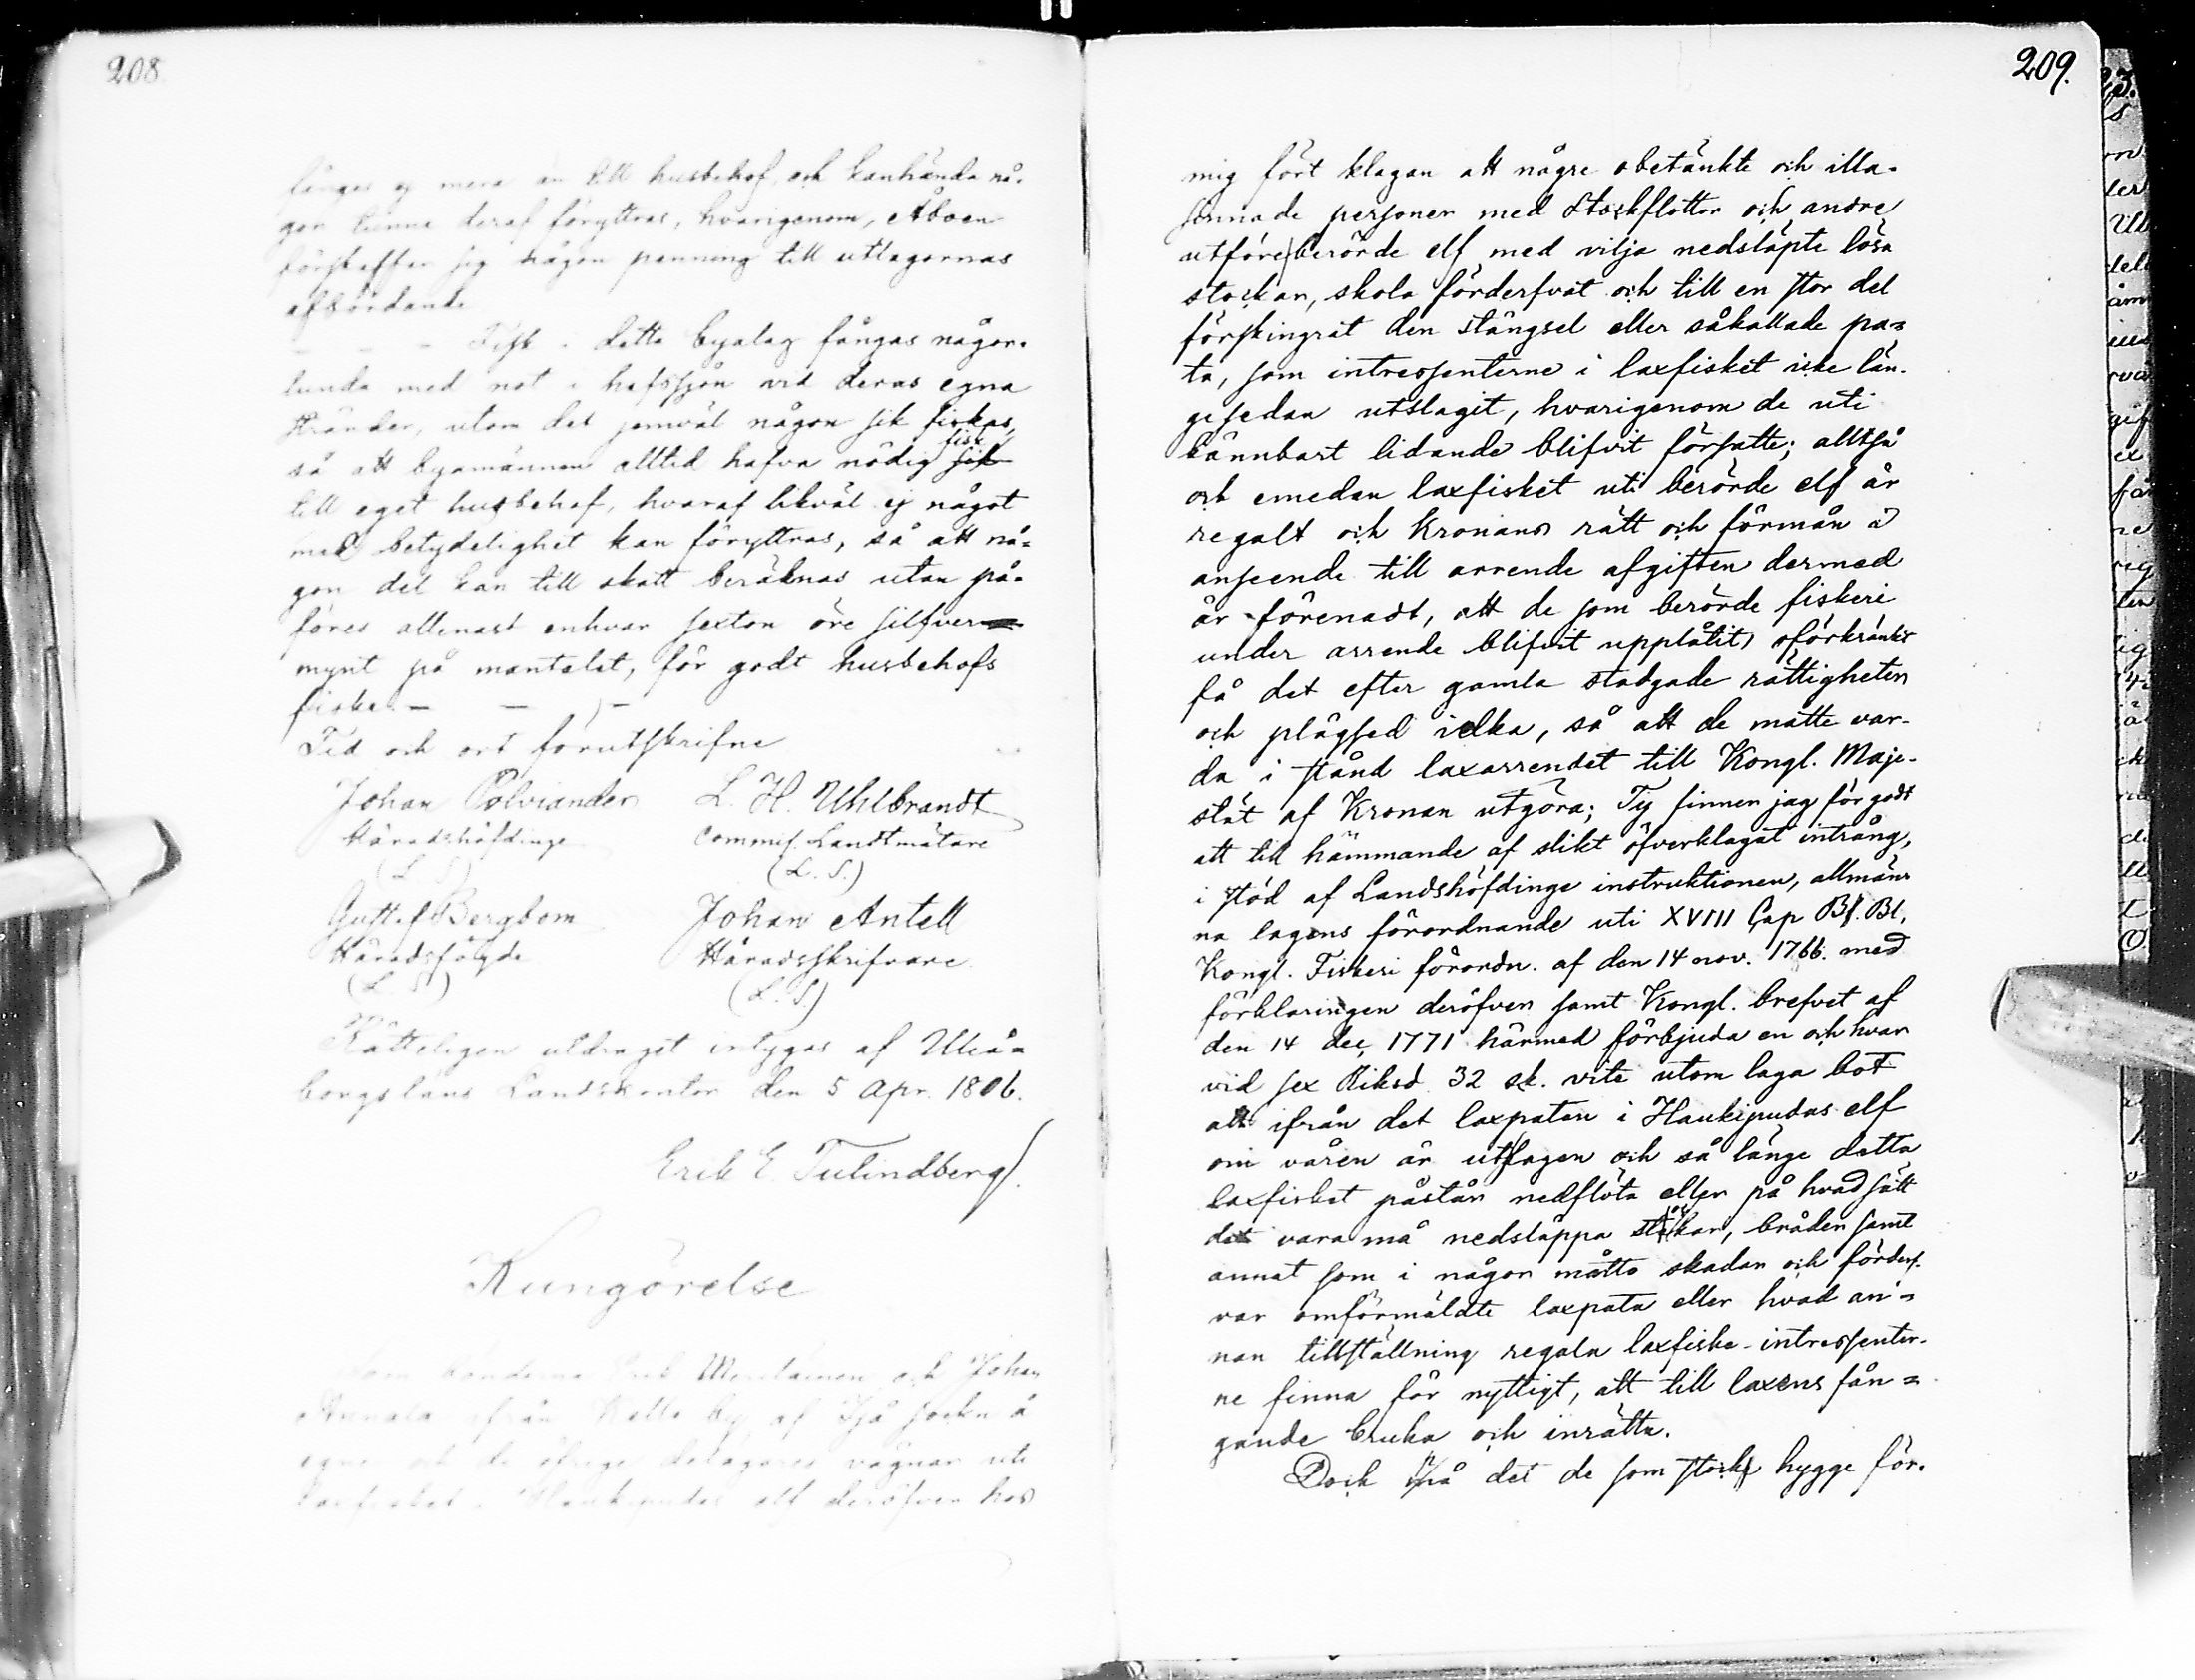 208
långas ej mera än till husbehof, och kanhända nå-
gon tunna deraf föryttras, hvarigenom, Åboen
förskaffar sig någon penning till utlagornas
afbördande
– – – Fisk i detta byalag fångas någor-
lunda med not i hafssjön vid deras egna
stränder, utom det jemväl någon sik fiskas,
så att byamännen alltid hafva nödig fisk
till eget husbehof, hvaraf likväl ej något
med betydelighet kan föryttras, så att nå-
gon del kan till skatt beräknas utan på-
föres allenast enhvar sexton öre silfver
mynt på mantalet, för godt husbehofs
fiske. – – –
Tid och ort förutskrifne
Johan Polviander L. H. Uhlbrandt
Häradshöfdinge Commis. Landtmätare
(L. S.) (L. S.)
Gustaf Bergbom Johan Antell
Häradsfogde Häradsskrifvare
(L. S.) (L. S.)
Rätteligen utdraget intygas af Uleå-
borgs läns Landskontor den 5 Apr. 1806.
Erik E. Tulindberg.
Kungörelse
Som bönderne Erik och Johan
Annala ifrån Kello by af Ijå sockn å
egne och de öfrige delägares vägnar uti
laxfisket i Haukipudas elf deröfver hos
209.
mig fört klagan att någre obetänkte och illa-
sinnade personer med Stockflottor och andre
utföre berörde elf med vilja nedsläpte lösa
stockar, skola förderfvat och till en stor del
förskingrat den stängsel eller såkallade pa-
ta, som intressenterne i laxfisket icke län-
gesedan utslagit, hvarigenom de uti
kännbart lidande blifvit försatte; alltså
och emedan laxfisket uti berörde elf är
regalt och Kronans rätt och förmån i
anseende till arrende afgiften dermed
är förenadt, att de som berörde fiskeri
under arrende blifvit upplåtit, oförkränkt
få det efter gamla stadgade rättigheten
och plägsed idka, så att de måtte var-
da i stånd laxarrendet till Kongl. Maje-
stät af Kronan utgöra; Ty finner jag för godt
att till hämmande af slikt öfverklagat intrång,
i stöd af Landshöfdinge instruktionen, allmän-
na lagens förordnande uti XVIII Cap B. Bl.
Kongl. Fiskeri förordn. af den 14 nov. 1766. med
förklaringen deröfver samt Kongl. brefvet af
den 14 dec, 1771 härmed förbjuda en och hvar
vid sex Riksd. 32 sk. vite utom laga bot
att ifrån det laxpatan i Haukipudas elf
om våren är utslagen och så länge detta
laxfisket påstår nedflöta eller på hvad sätt
det vara må nedsläppa stockar, bräder samt
annat som i någor måtto skadar och förderf-
var omförmäldte laxpata eller hvad an-
nan tillställning regala laxfiske-intressenter-
ne finna för nyttigt, att till laxens fån-
gande bruka och inrätta.
Dock må det de som stock hygge för-